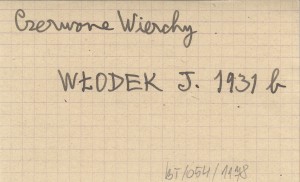 Czerwone Wierchy
WŁODEK J. 1931 b
BT/054/1198